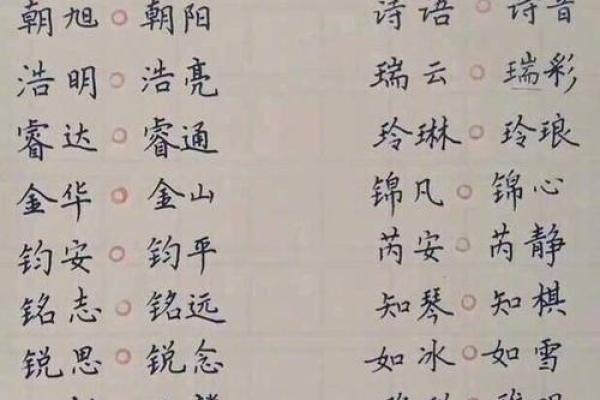 朝旭○朝阳 诗语○诗音
浩明○浩亮 瑞云○瑞彩
睿达○睿通 玲琳○玲琅
金华○金山 锦凡○锦心
钧安○钧平 芮安○芮静
铭志○铭远 知琴○知棋
锐思○锐念 如冰○如雪